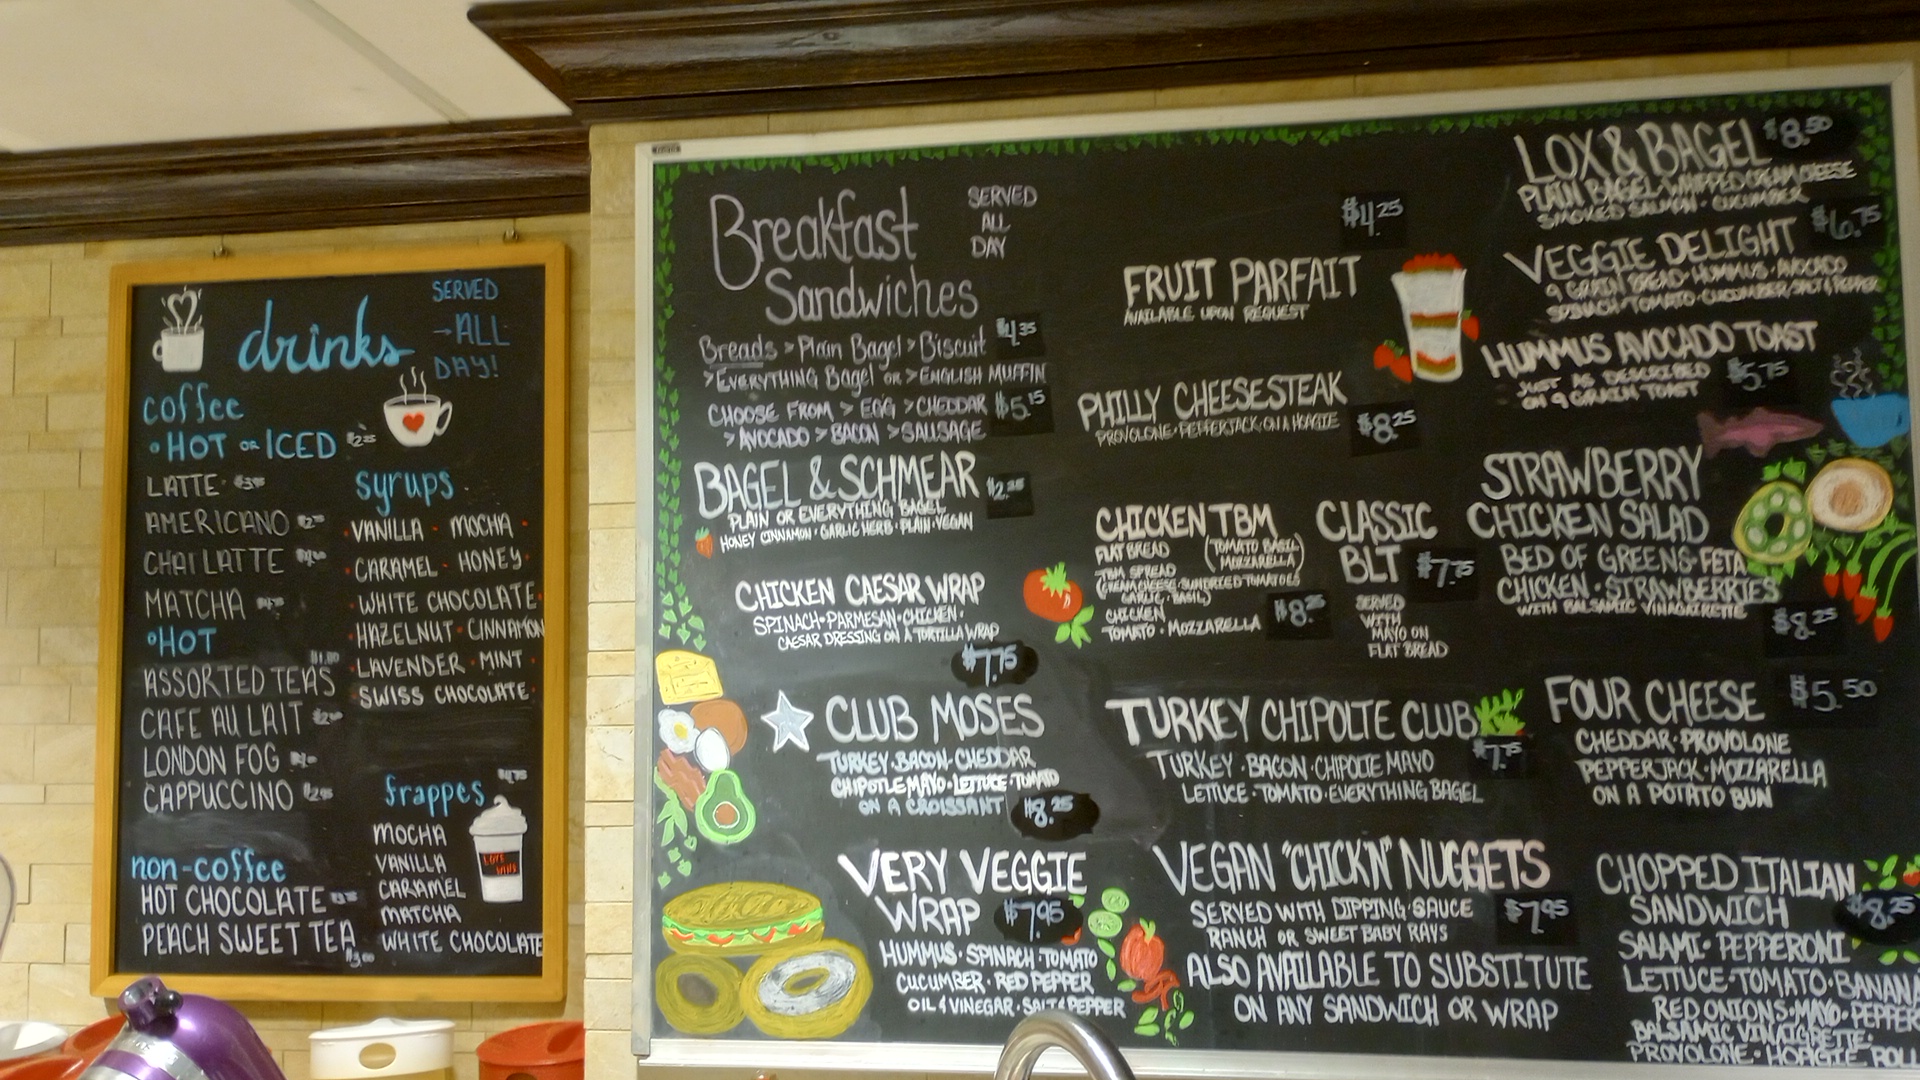 drinks
SERVED
→ALL
DAY!
coffee
HOT OR ICED
LATTE
AMERICANO
CHAI LATTE
MATCHA
HOT
ASSORTED TEAS
CAFE AU LAIT
LONDON FOG
CAPPUCCINO
non-coffee
HOT CHOCOLATE
PEACH SWEET TEA
$3.00
syrups
VANILLA · MOCHA ·
· CARAMEL · HONEY ·
· WHITE CHOCOLATE ·
· HAZELNUT · CINNAMON
· LAVENDER · MINT ·
· SWISS CHOCOLATE ·
frappes
$4.75
MOCHA
VANILLA
CARAMEL
MATCHA
WHITE CHOCOLATE
Breakfast
Sandwiches
SERVED
ALL
DAY
Breads > Plain Bagel > Biscuit $4.35
> EVERYTHING Bagel OR > ENGLISH MUFFIN
CHOOSE FROM > EGG > CHEDDAR $5.15
> AVOCADO > BACON > SAUSAGE
BAGEL & SCHMEAR
PLAIN OR EVERYTHING BAGEL
HONEY CINNAMON · GARLIC HERB · PLAIN · VEGAN
CHICKEN CAESAR WRAP
SPINACH · PARMESAN · CHICKEN ·
CAESAR DRESSING ON A TORTILLA WRAP
$7.75
CLUB MOSES
TURKEY · BACON · CHEDDAR
CHIPOTLE MAYO · LETTUCE · TOMATO
ON A CROISSANT $8.25
VERY VEGGIE
WRAP $7.95
HUMMUS · SPINACH · TOMATO
CUCUMBER · RED PEPPER
OIL & VINEGAR · SALT & PEPPER
$4.25
FRUIT PARFAIT
AVAILABLE UPON REQUEST
PHILLY CHEESESTEAK
PROVOLONE · PEPPERJACK · ON A HOAGIE $8.25
CHICKEN TBM
FLAT BREAD (TOMATO BASIL
MOZZARELLA)
TBM SPREAD
(CREAM CHEESE · SUNDRIED TOMATOES
GARLIC · BASIL)
CHICKEN
TOMATO · MOZZARELLA $8.25
CLASSIC
BLT $7.75
SERVED
WITH
MAYO ON
FLAT BREAD
TURKEY CHIPOLTE CLUB
TURKEY · BACON · CHIPOLTE MAYO $7.75
LETTUCE · TOMATO · EVERYTHING BAGEL
VEGAN "CHICK'N" NUGGETS
SERVED WITH DIPPING SAUCE $7.95
RANCH OR SWEET BABY RAYS
ALSO AVAILABLE TO SUBSTITUTE
ON ANY SANDWICH OR WRAP
LOX & BAGEL $8.50
PLAIN BAGEL · WHIPPED CREAM CHEESE
SMOKED SALMON · CUCUMBER
VEGGIE DELIGHT $6.75
9 GRAIN BREAD · HUMMUS · AVOCADO
SPINACH · TOMATO · CUCUMBER · SALT & PEPPER
HUMMUS AVOCADO TOAST
JUST AS DESCRIBED $5.75
ON 9 GRAIN TOAST
STRAWBERRY
CHICKEN SALAD
BED OF GREENS · FETA
CHICKEN · STRAWBERRIES
WITH BALSAMIC VINAGAIRETTE
$8.25
FOUR CHEESE $5.50
CHEDDAR · PROVOLONE
PEPPERJACK · MOZZARELLA
ON A POTATO BUN
CHOPPED ITALIAN
SANDWICH $8.25
SALAMI · PEPPERONI
LETTUCE · TOMATO · BANANA
RED ONIONS · MAYO · PEPPER
BALSAMIC VINAIGRETTE
PROVOLONE · HOAGIE ROLL